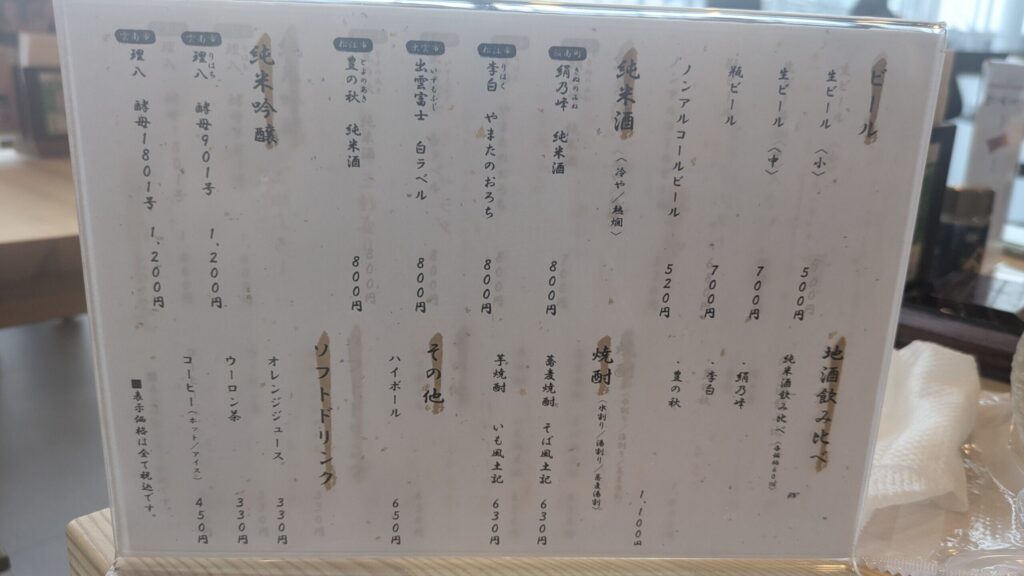 ビール
生ビール〈小〉 500円
生ビール〈中〉 700円
瓶ビール 700円
ノンアルコールビール 520円
純米酒〈冷や/熱燗〉
絹乃峰 純米酒 800円
松江市
りはく
李白 やまたのおろち 800円
出雲市
いずもふじ
出雲富士 白ラベル 800円
松江市
とよのあき
豊の秋 純米酒 800円
純米吟醸
雲南市
りはち
理八 酵母901号 1,200円
雲南市
理八 酵母1801号 1,200円
地酒飲み比べ
純米酒飲み比べ
・絹乃峰
・李白
・豊の秋
1,100円
焼酎〈水割り/湯割り/蕎麦湯割〉
蕎麦焼酎 そば風土記 630円
芋焼酎 いも風土記 630円
その他
ハイボール 650円
ソフトドリンク
オレンジジュース 330円
ウーロン茶 330円
コーヒー(ホット/アイス) 450円
■表示価格は全て税込です。